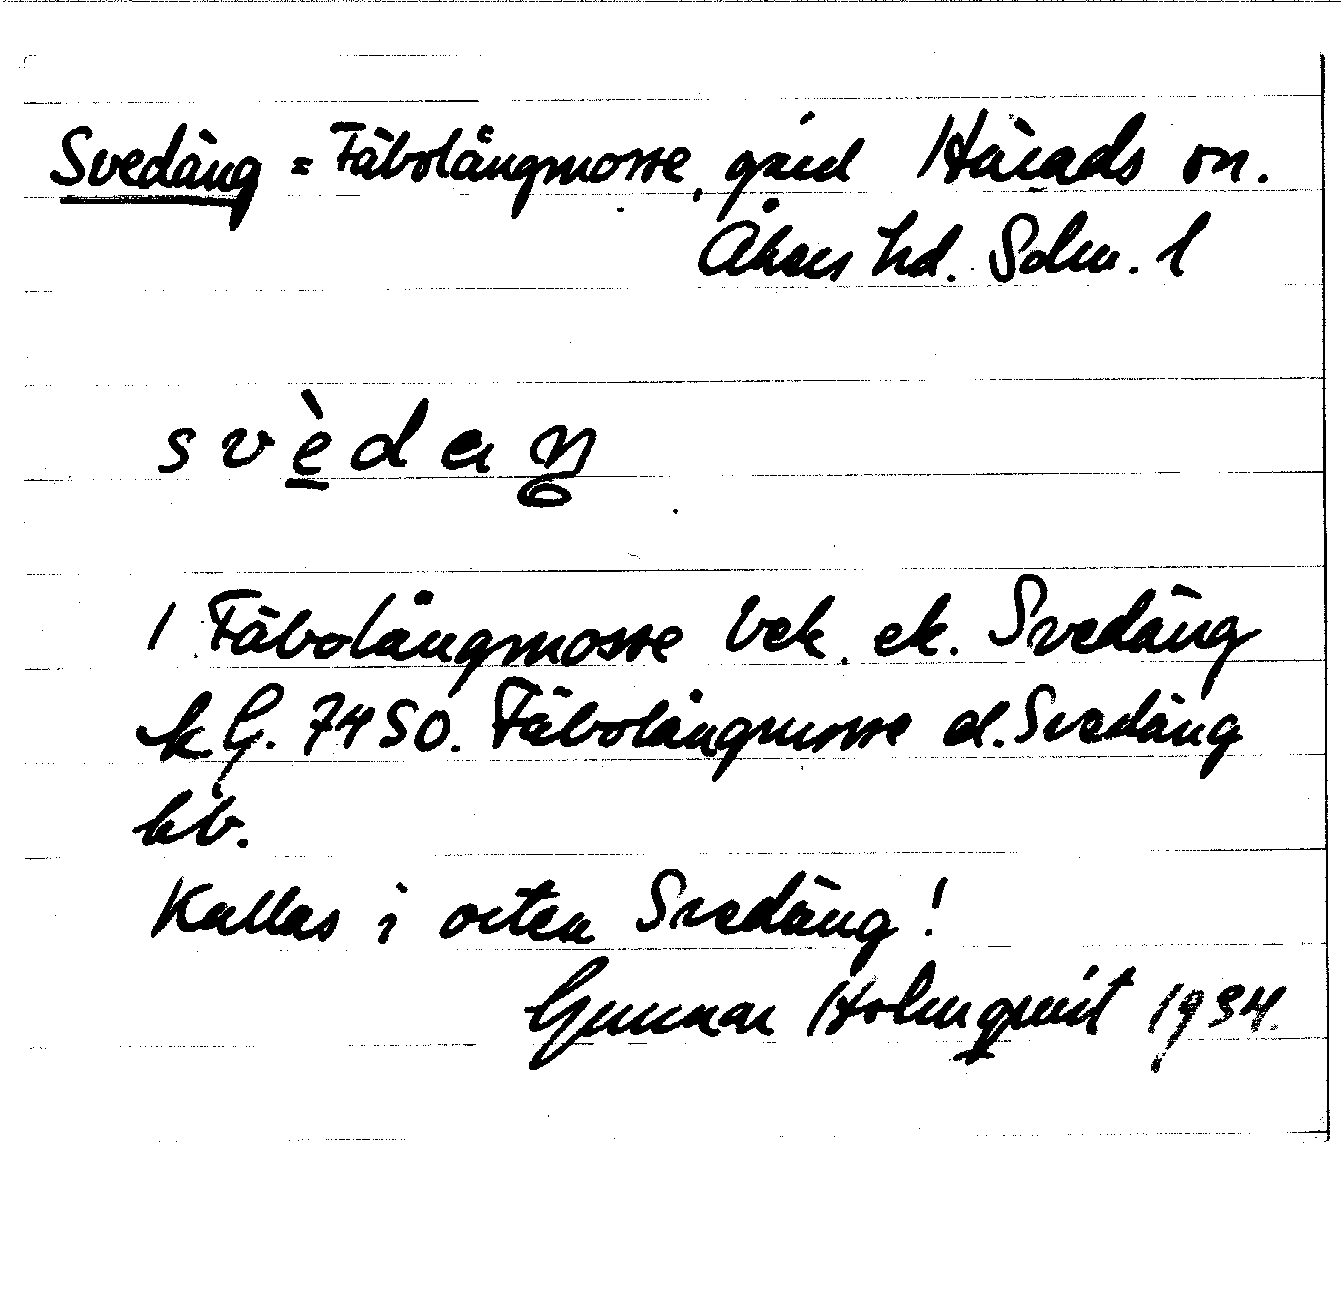 Svedäng = Fäbolångmosse, gård Härads sn.
Åkers hd. Sdm. l
svèdaŋ
1 Fäbolångmosse bek. ek. Svedäng
k G. 7450. Fäbolångmosse el. Svedäng
hb.
Kallas i orten Svedäng!
Gunnar Holmquist 1934.